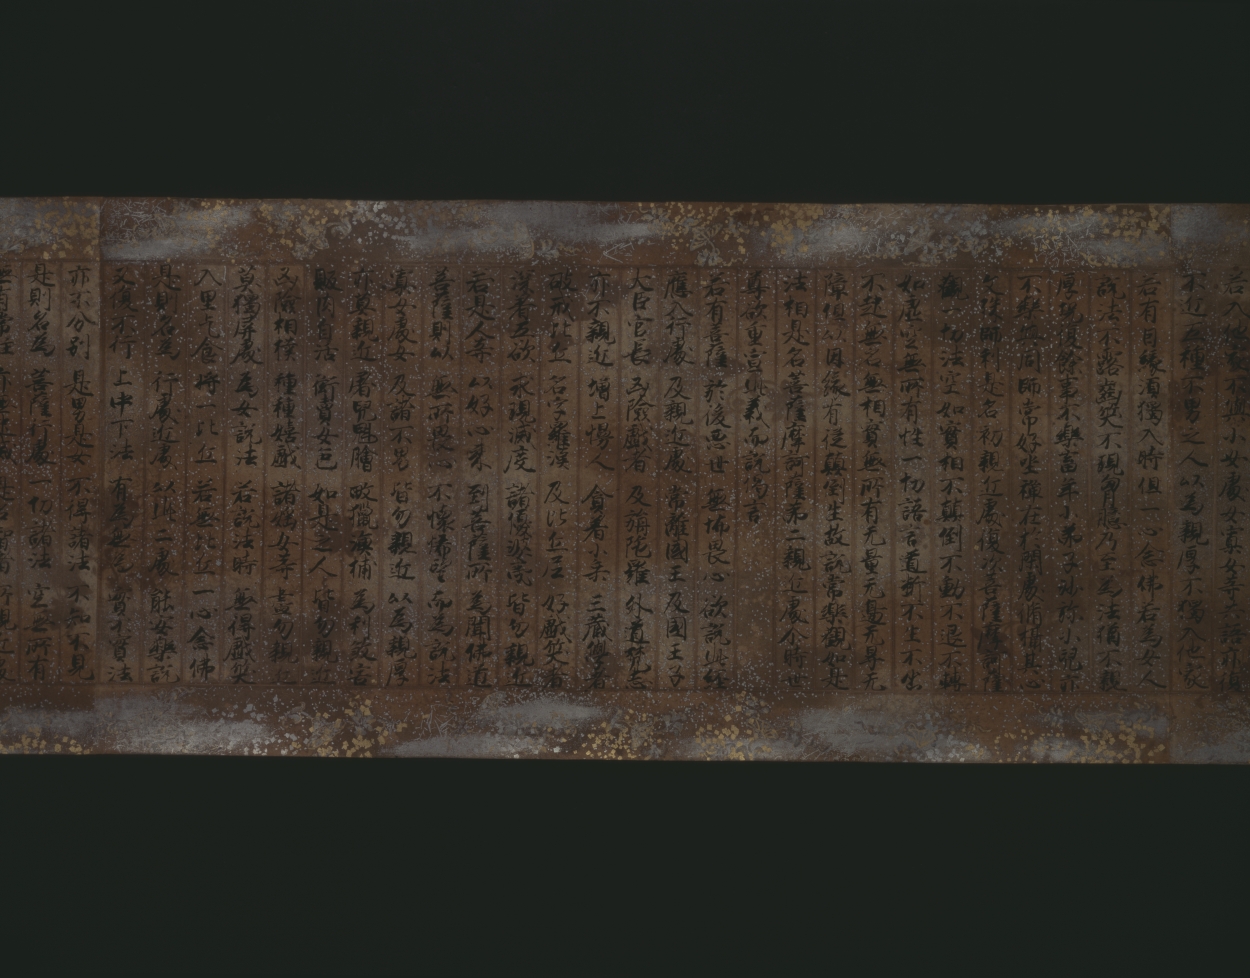 若入他家不與小女處女寡女等共語亦復
不近五種不男之人以為親厚不獨入他家
若有因緣須獨入時但一心念佛若為女人
說法不露齒笑不現胷臆乃至為法猶不親
厚況復餘事不樂畜年少弟子沙弥小兒亦
不樂與同師常好坐禪在於閑處脩攝其心
文殊師利是名初親近處復次菩薩摩訶薩
觀一切法空如實相不顛倒不動不退不轉
如虛空無所有性一切語言道斷不生不出
不起無名無相實無所有无量无邊无㝵无
障但以因緣有從顛倒生故說常樂觀如是
法相是名菩薩摩訶薩第二親近處尒時世
尊欲重宣此義而說偈言
若有菩薩 於後惡世 無怖畏心 欲說此經
應入行處 及親近處 常離國王 及國王子
大臣官長 凶險戲者 及旃陀羅 外道梵志
亦不親近 增上慢人 貪著小乘 三藏學者
破戒比丘 名字羅漢 及比丘尼 好戲笑者
深著五欲 求現滅度 諸優婆夷 皆勿親近
若是人等 以好心來 到菩薩所 為聞佛道
菩薩則以 無所畏心 不懷悕望 而為說法
寡女處女 及諸不男 皆勿親近 以為親厚
亦莫親近 屠兒魁膾 畋獵漁捕 為利殺害
販肉自活 衒賣女色 如是之人 皆勿親近
凶險相撲 種種嬉戲 諸婬女等 盡勿親近
莫獨屏處 為女說法 若說法時 無得戲笑
入里乞食 將一比丘 若無比丘 一心念佛
是則名為 行處近處 以此二處 能安樂說
又復不行 上中下法 有為無為 實不實法
亦不分別 是男是女 不得諸法 不知不見
是則名為 菩薩行處 一切諸法 空無所有